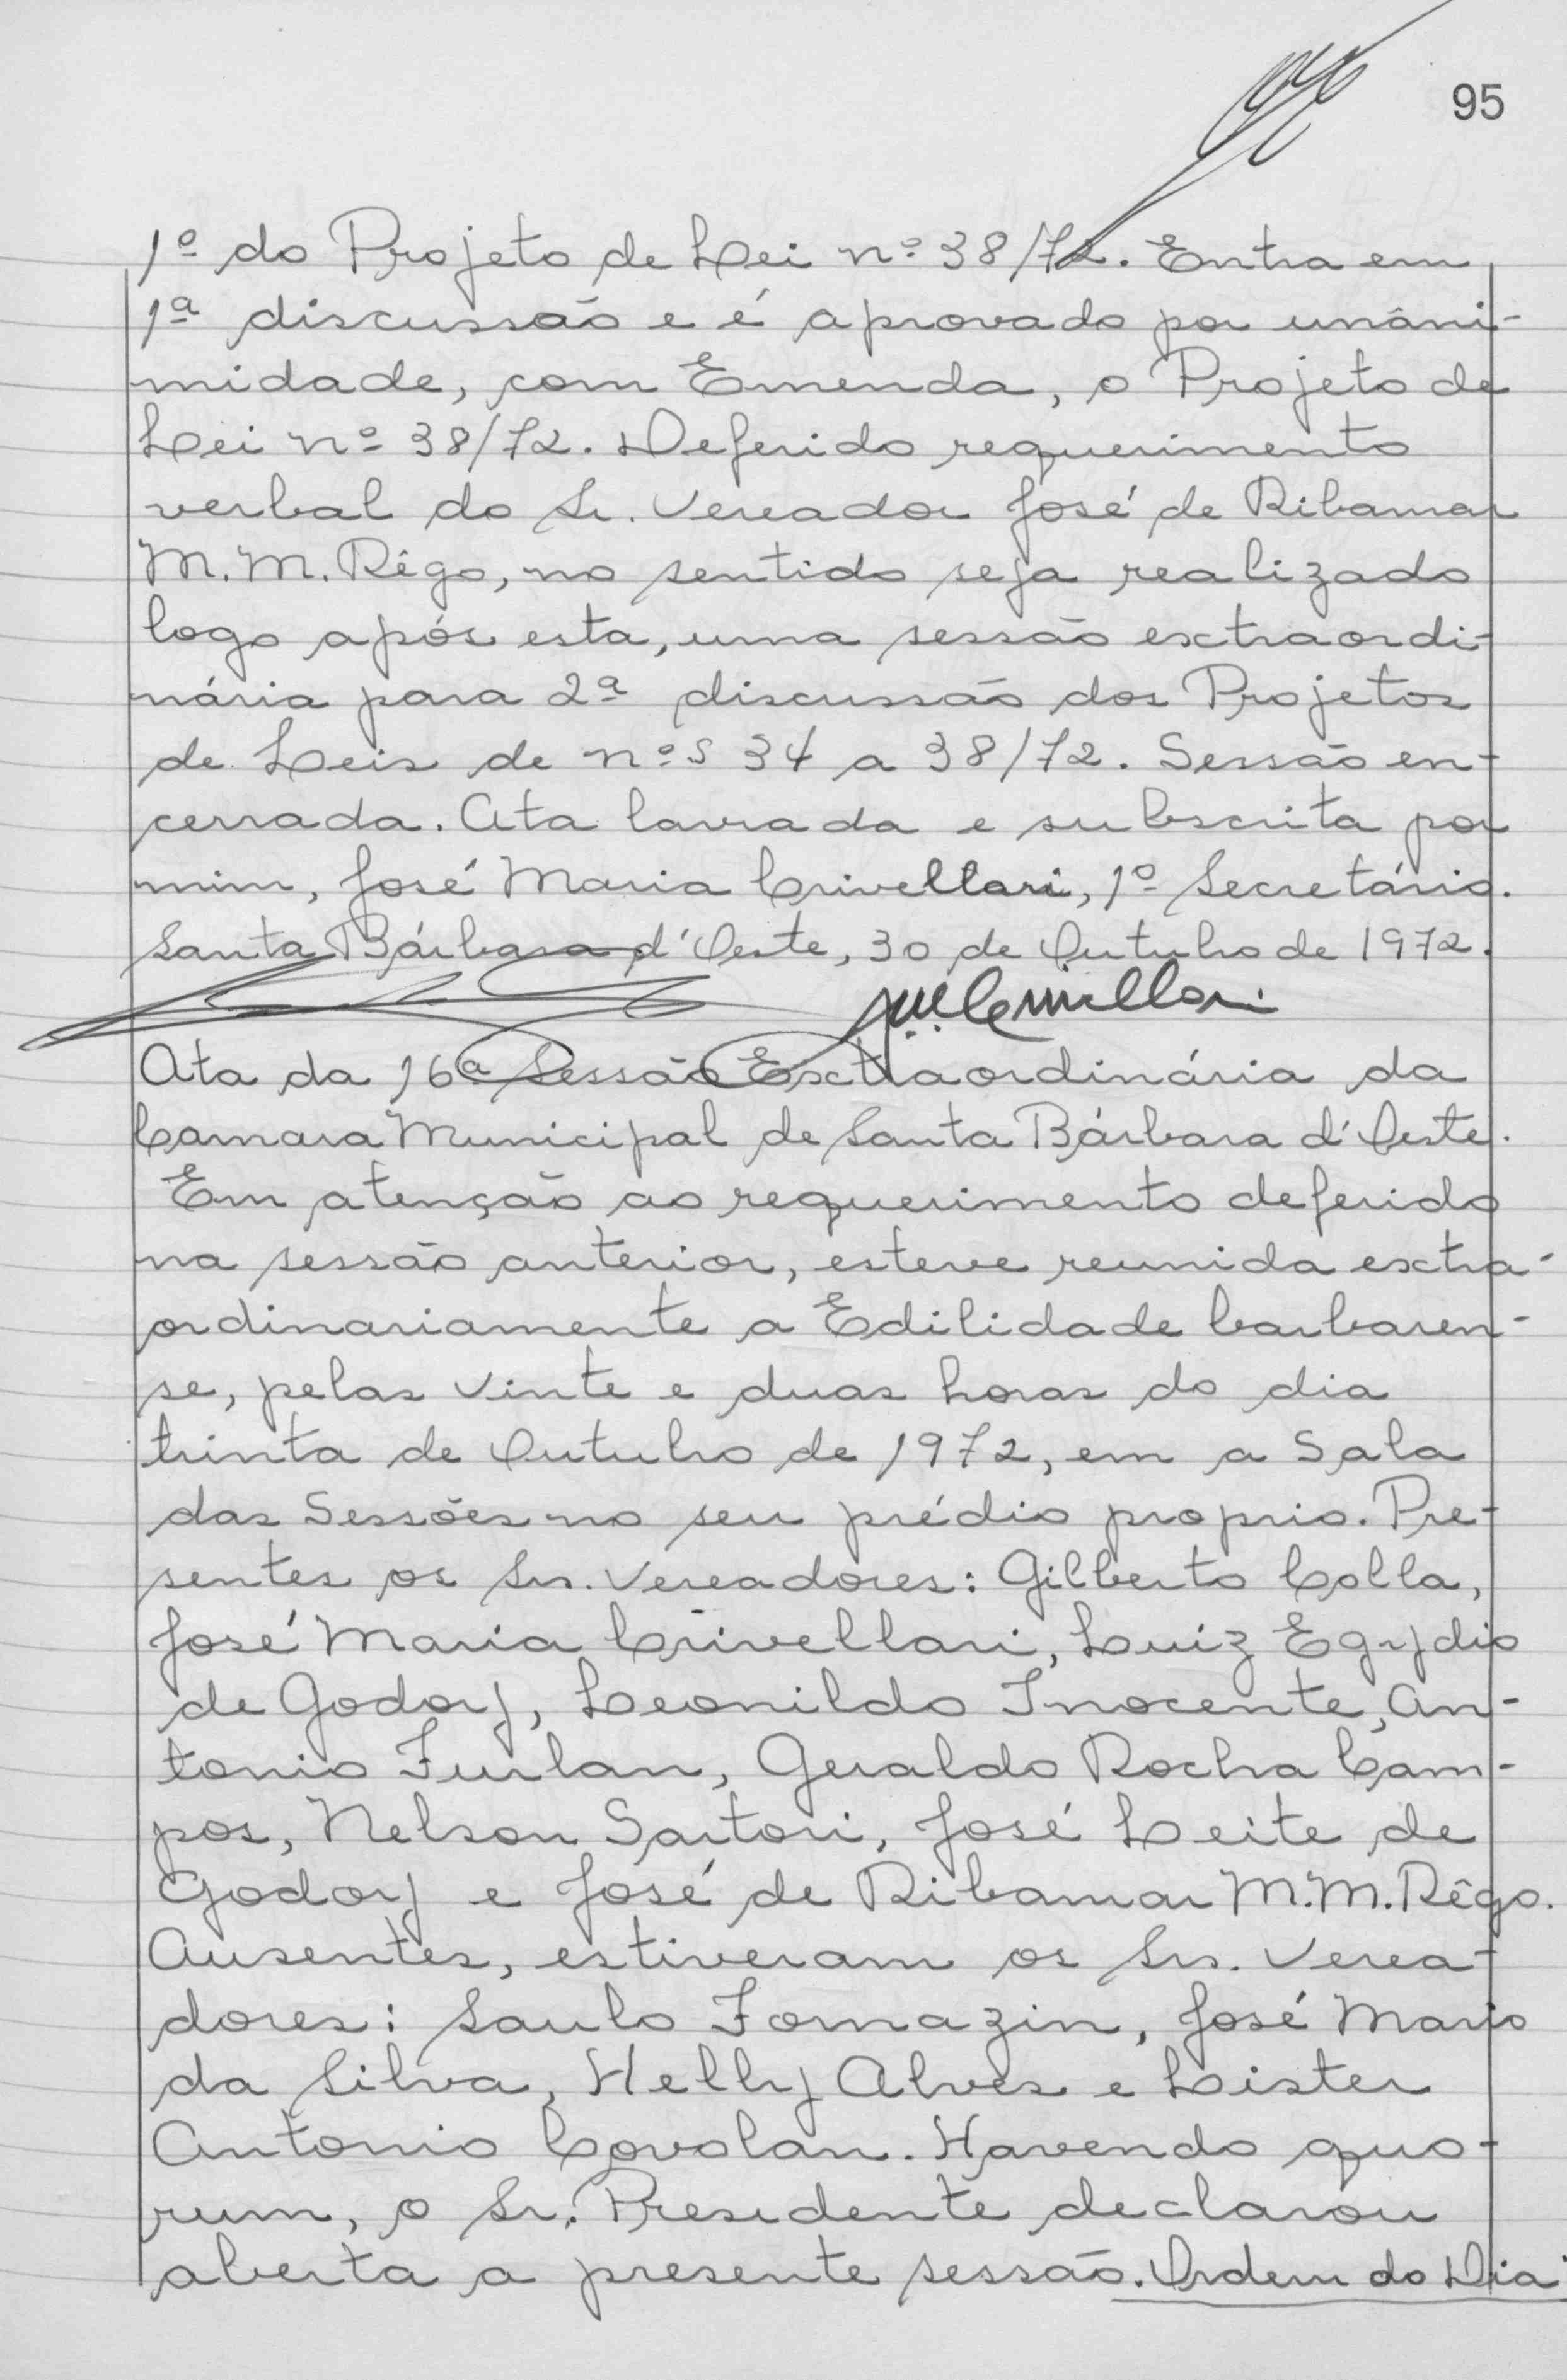 95
1º do Projeto de Lei nº 38/72. Entra em
1ª discussão e é aprovado por unâni-
midade, com Emenda, o Projeto de
Lei nº 38/72. Deferido requerimento
verbal do Sr. Vereador José de Ribamar
M.M. Rêgo, no sentido seja realizado
logo após esta, uma sessão extraordi-
nária para 2ª discussão dos Projetos
de Leis de nºs 34 a 38/72. Sessão en-
cerrada. Ata lavrada e subscrita por
mim, José Maria Crivellari, 1º Secretário.
Santa Bárbara d'Oeste, 30 de Outubro de 1972.
Ata da 16ª Sessão Extraordinária da
Camara Municipal de Santa Bárbara d'Oeste.
Em atenção ao requerimento deferido
na sessão anterior, esteve reunida extra-
ordinariamente a Edilidade barbaren-
se, pelas vinte e duas horas do dia
trinta de Outubro de 1972, em a Sala
das Sessões no seu prédio proprio. Pre-
sentes os Srs. Vereadores: Gilberto Colla,
José Maria Crivellari, Luiz Egydio
de Godoy, Leonildo Inocente, An-
tonio Furlan, Geraldo Rocha Cam-
pos, Nelson Sartori, José Leite de
Godoy e José de Ribamar M.M. Rêgo.
Ausentes, estiveram os Srs. Verea-
dores: Saulo Fornazin, José Mario
da Silva, Helly Alves e Lister
Antonio Covolan. Havendo quo-
rum, o Sr. Presidente declarou
aberta a presente sessão. Ordem do Dia: